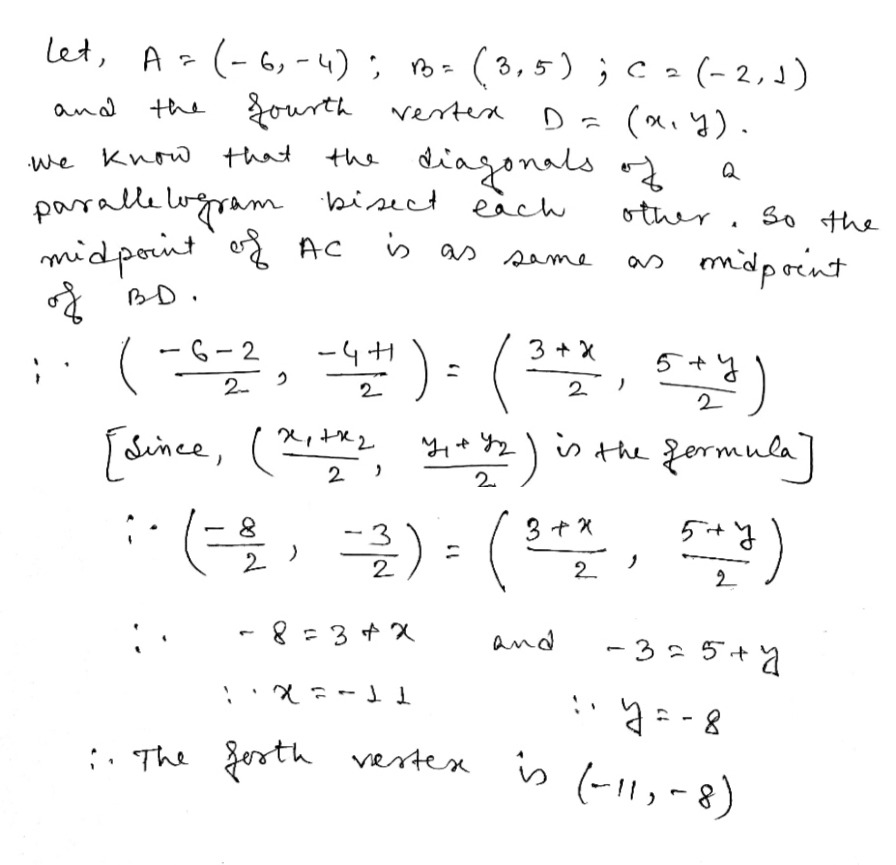 Let, A = (-6, -4) ; B = (3, 5) ; C = (-2, 1)
and the fourth vertex D = (x, y) .
we know that the diagonals of a
parallelogram bisect each other. So the
midpoint of AC is as same as midpoint
of BD.
∴ ( (-6-2)/2 , (-4+1)/2 ) = ( (3+x)/2 , (5+y)/2 )
[Since, ( (x₁+x₂)/2 , (y₁+y₂)/2 ) is the formula]
∴ ( -8/2 , -3/2 ) = ( (3+x)/2 , (5+y)/2 )
∴ -8 = 3+x and -3 = 5+y
∴ x = -11 ∴ y = -8
∴ The forth vertex is (-11, -8)